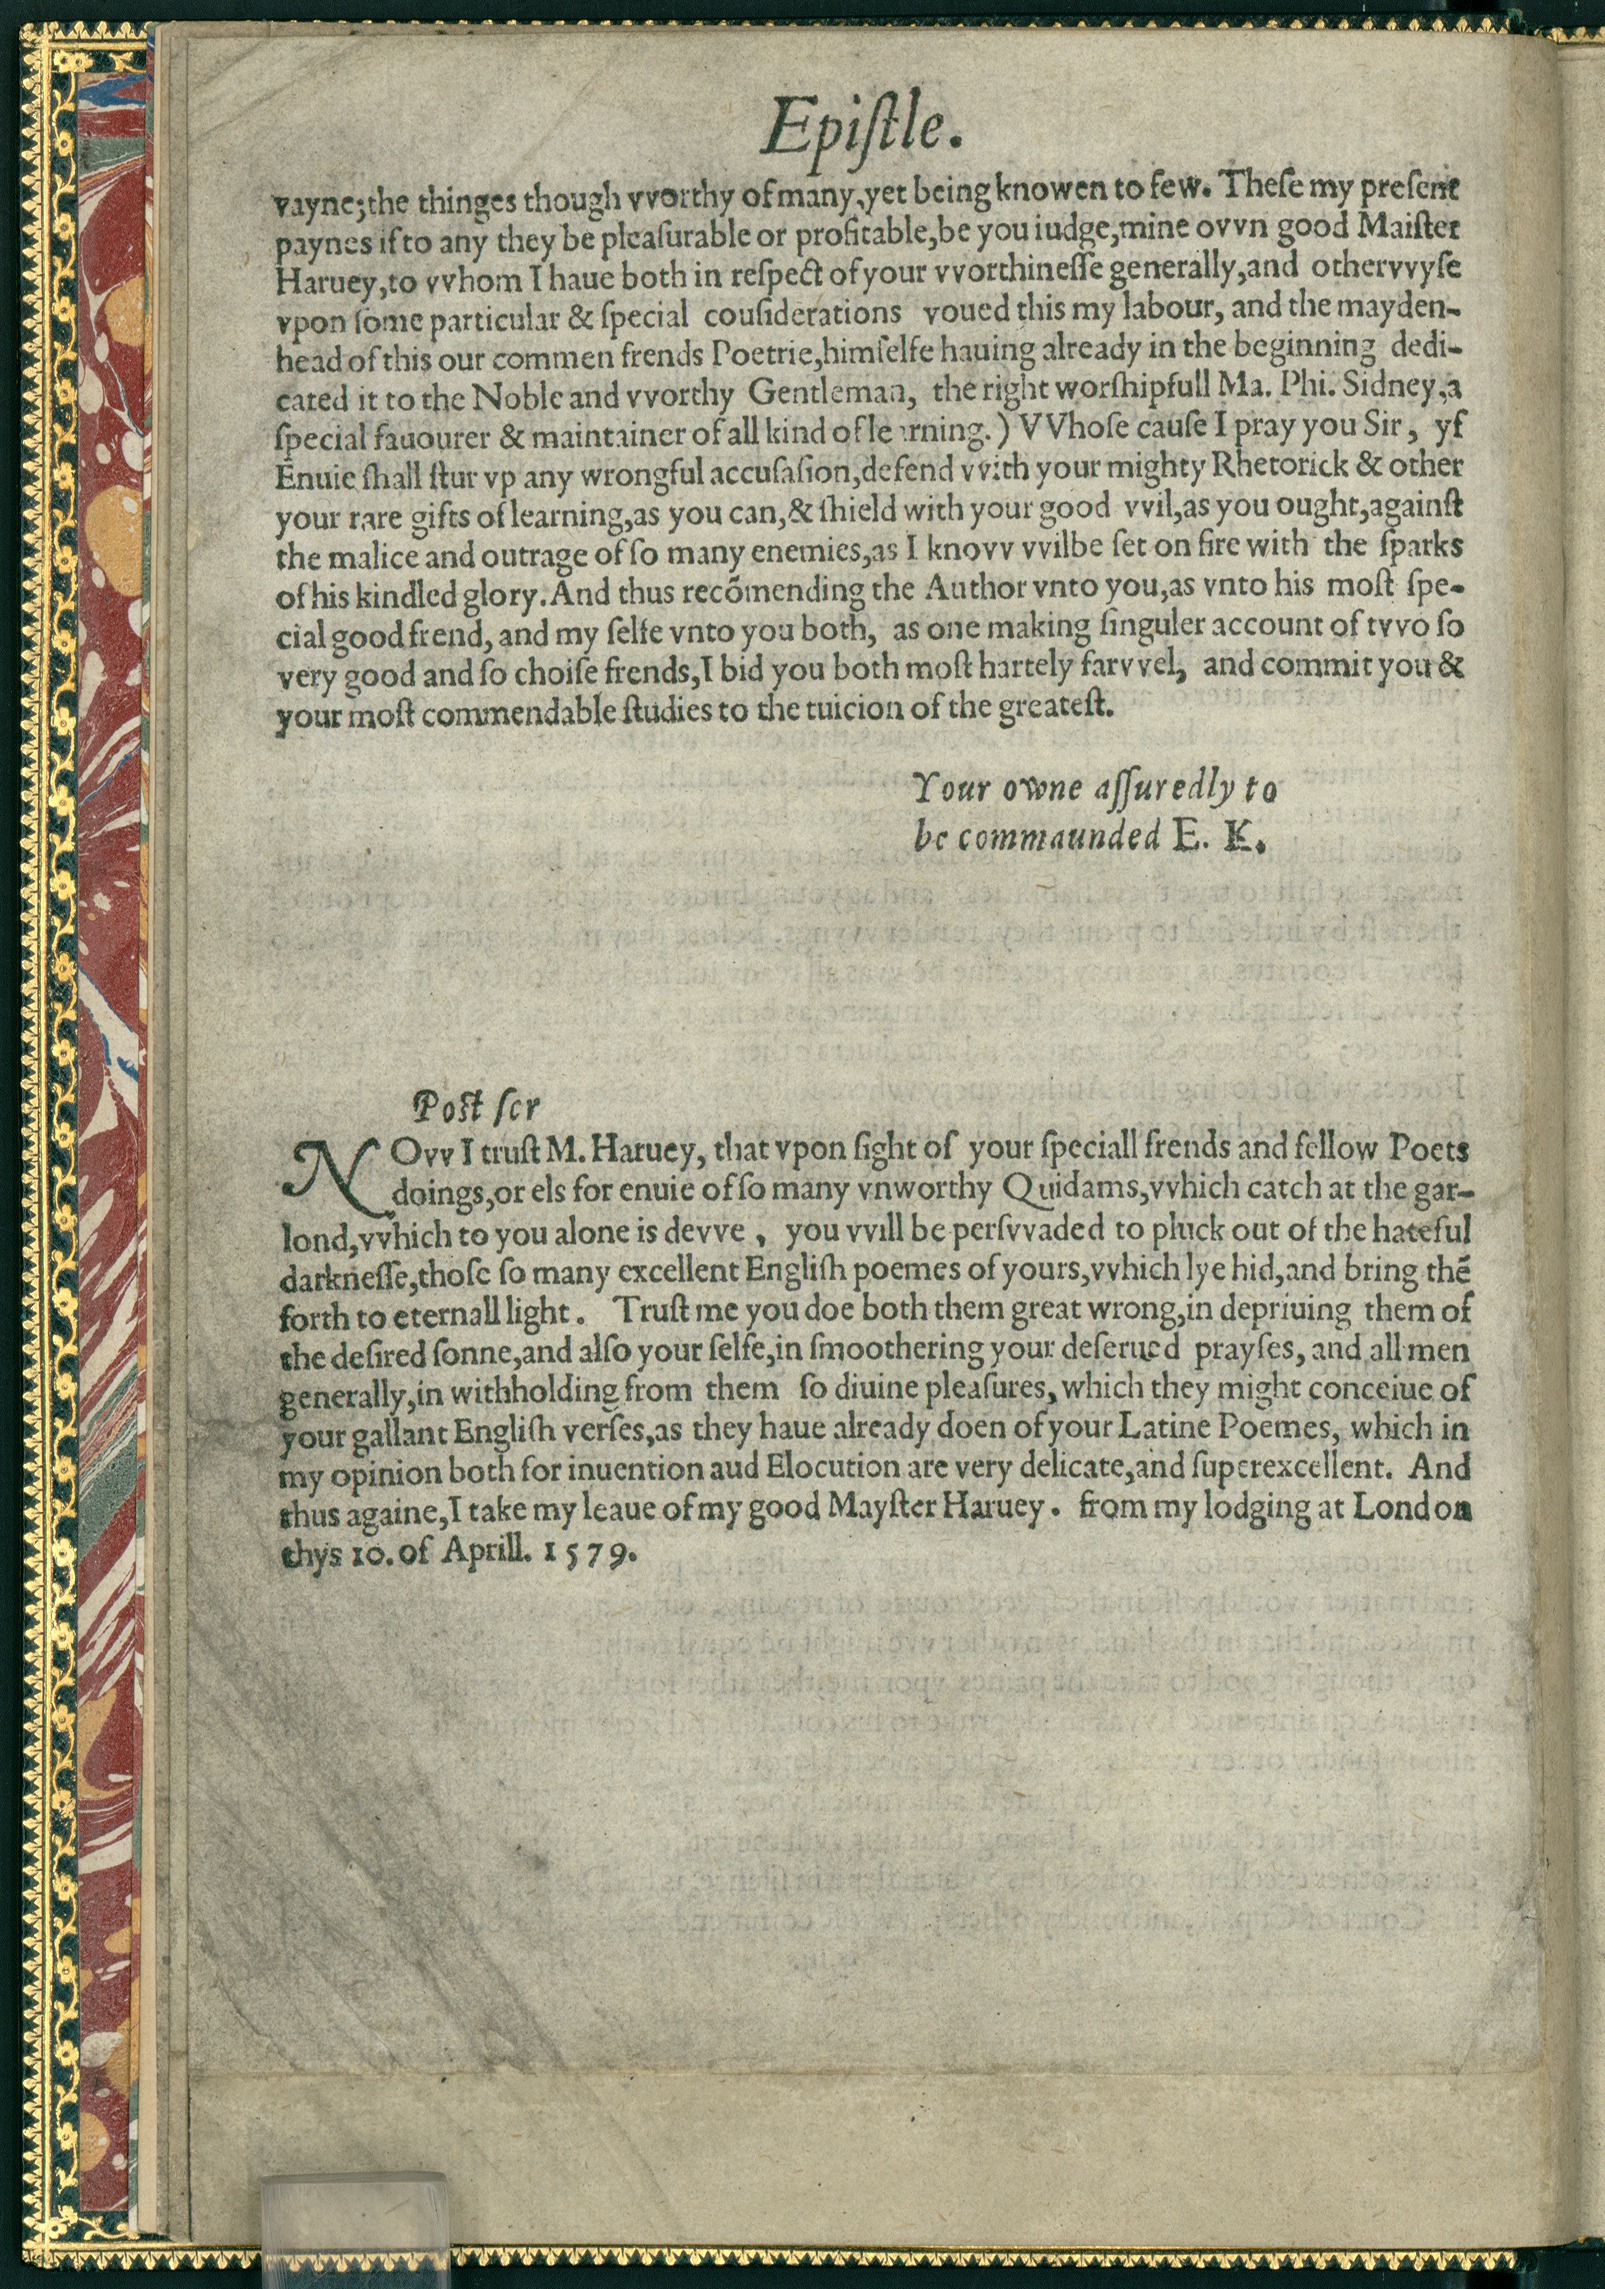 Epiſtle.
vayne;the thinges though vvorthy of many,yet being knowen to few. Theſe my preſent
paynes if to any they be pleaſurable or profitable,be you iudge,mine ovvn good Maiſter
Haruey,to vvhom I haue both in reſpect of your vvorthineſſe generally,and othervvyſe
vpon ſome particular & ſpecial couſiderations voued this my labour, and the mayden-
head of this our commen frends Poetrie,himſelfe hauing already in the beginning dedi-
cated it to the Noble and vvorthy Gentleman, the right worſhipfull Ma. Phi. Sidney,a
ſpecial fauourer & maintainer of all kind of le rning.) VVhoſe cauſe I pray you Sir, yf
Enuie ſhall ſtur vp any wrongful accuſaſion,defend vvith your mighty Rhetorick & other
your rare gifts of learning,as you can,& ſhield with your good vvil,as you ought,againſt
the malice and outrage of ſo many enemies,as I knovv vvilbe ſet on fire with the ſparks
of his kindled glory.And thus recõmending the Author vnto you,as vnto his moſt ſpe-
cial good frend, and my ſelfe vnto you both, as one making ſinguler account of tvvo ſo
very good and ſo choiſe frends,I bid you both moſt hartely farvvel, and commit you &
your moſt commendable ſtudies to the tuicion of the greateſt.
Your owne aſſuredly to
be commaunded E. K.
Poſt ſcr
NOvv I truſt M. Haruey, that vpon ſight of your ſpeciall frends and fellow Poets
doings,or els for enuie of ſo many vnworthy Quidams,vvhich catch at the gar-
lond,vvhich to you alone is devve, you vvill be perſvvaded to pluck out of the hateful
darkneſſe,thoſe ſo many excellent Engliſh poemes of yours,vvhich lye hid,and bring thẽ
forth to eternall light. Truſt me you doe both them great wrong,in depriuing them of
the deſired ſonne,and alſo your ſelfe,in ſmoothering your deſerued prayſes, and all men
generally,in withholding from them ſo diuine pleaſures, which they might conceiue of
your gallant Engliſh verſes,as they haue already doen of your Latine Poemes, which in
my opinion both for inuention aud Elocution are very delicate,and ſuperexcellent. And
thus againe,I take my leaue of my good Mayſter Haruey. from my lodging at London
thys 10. of Aprill. 1579.